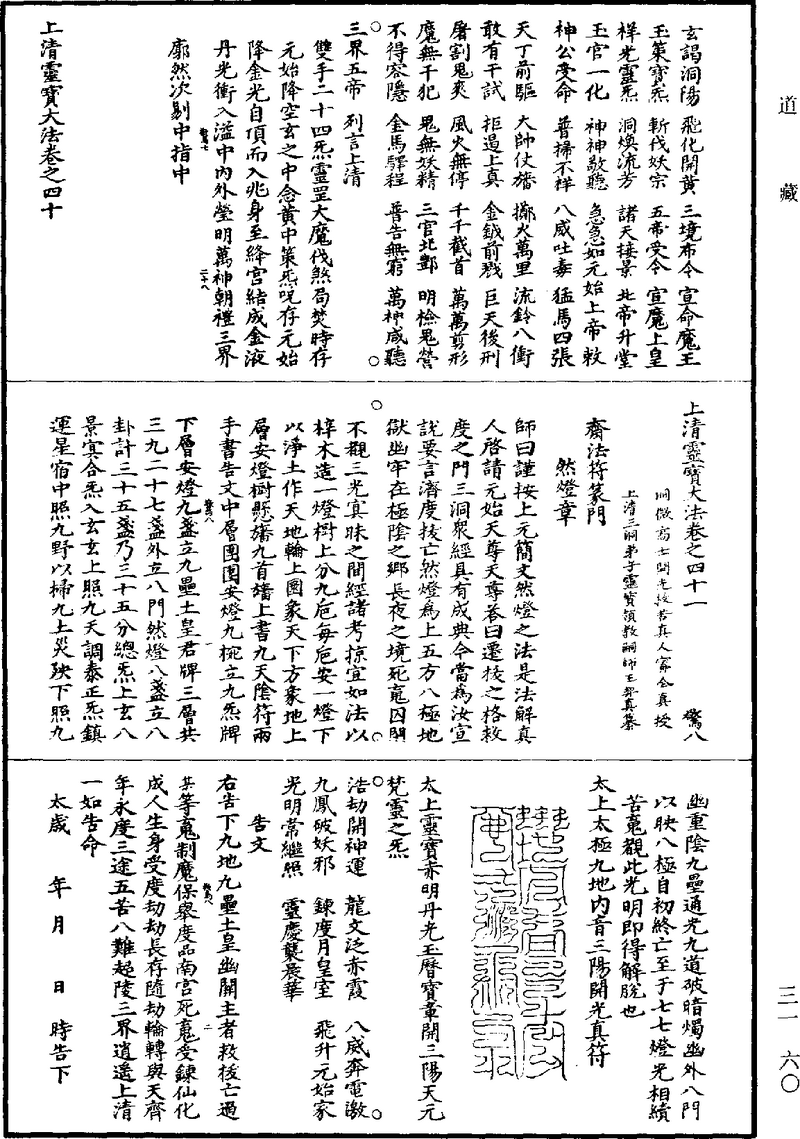 道藏
三一 六〇
玄謁洞陽 飛化開黃 三境布令 宣命魔王
玉策寶炁 斬伐妖宗 五帝受令 宣魔上皇
祥光靈炁 洞煥流芳 諸天接景 北帝升堂
玉官一化 神神敬聽 急急如元始上帝敕
神公受命 普掃不祥 八威吐毒 猛馬四張
天丁前驅 大帥仗旛 擲火萬里 流鈴八衝
敢有干試 拒遏上真 金鉞前戮 巨天後刑
屠割鬼爽 風火無停 千千截首 萬萬剪形
魔無干犯 鬼無妖精 三官北酆 明檢鬼營
不得容隱 金馬驛程 普告無窮 萬神咸聽
三界五帝 列言上清
雙手二十四炁靈罡大魔伐煞局焚時存
元始降空玄之中念黃中策炁呪存元始
降金光自頂而入兆身至絳宮結成金液
丹光衝入溢中內外瑩明萬神朝禮三界
廓然次剔中指中
上清靈寶大法卷之四十
上清靈寶大法卷之四十一 驚八
洞微高士開光救苦真人甯全真授
上清三洞弟子靈寶領教嗣師王契真纂
齋法符篆門
然燈章
師曰謹按上元簡文然燈之法是法解真
人啓請元始天尊天尊荅曰遷拔之格救
度之門三洞衆經具有成典今當為汝宣
說要言濟度拔亡然燈為上五方八極地
獄幽牢在極陰之鄉長夜之境死䰟囚閉
不覩三光冥昧之間經諸考掠宜如法以
梓木造一燈樹上分九巵每巵安一燈下
以淨土作天地輪上圓象天下方象地上
層安燈樹懸旛九首旛上書九天陰符兩
手書告文中層團圓安燈九椀立九炁牌
下層安燈九盞立九壘土皇君牌三層共
三九二十七盞外立八門然燈八盞立八
卦計三十五盞乃三十五分總炁上玄八
景冥合炁入玄玄上照九天調泰正炁鎮
運星宿中照九野以掃九土災殃下照九
幽重陰九壘通光九道破暗燭幽外八門
以映八極自初終亡至于七七燈光相續
苦䰟覩此光明即得解脫也
太上太極九地內音三陽開光真符
太上靈寶赤明丹光玉曆寶章開三陽天元
梵靈之炁
浩劫開神運 龍文泛赤霞 八威奔電激
九鳳破妖邪 鍊度月皇室 飛升元始家
光明常繼照 靈慶襲晨華
告文
右告下九地九壘土皇幽關主者救拔亡過
某等䰟制魔保舉度品南宮死䰟受鍊仙化
成人生身受度劫劫長存隨劫輪轉與天齊
年永度三途五苦八難超陵三界逍遙上清
一如告命
太歲 年 月 日 時告下